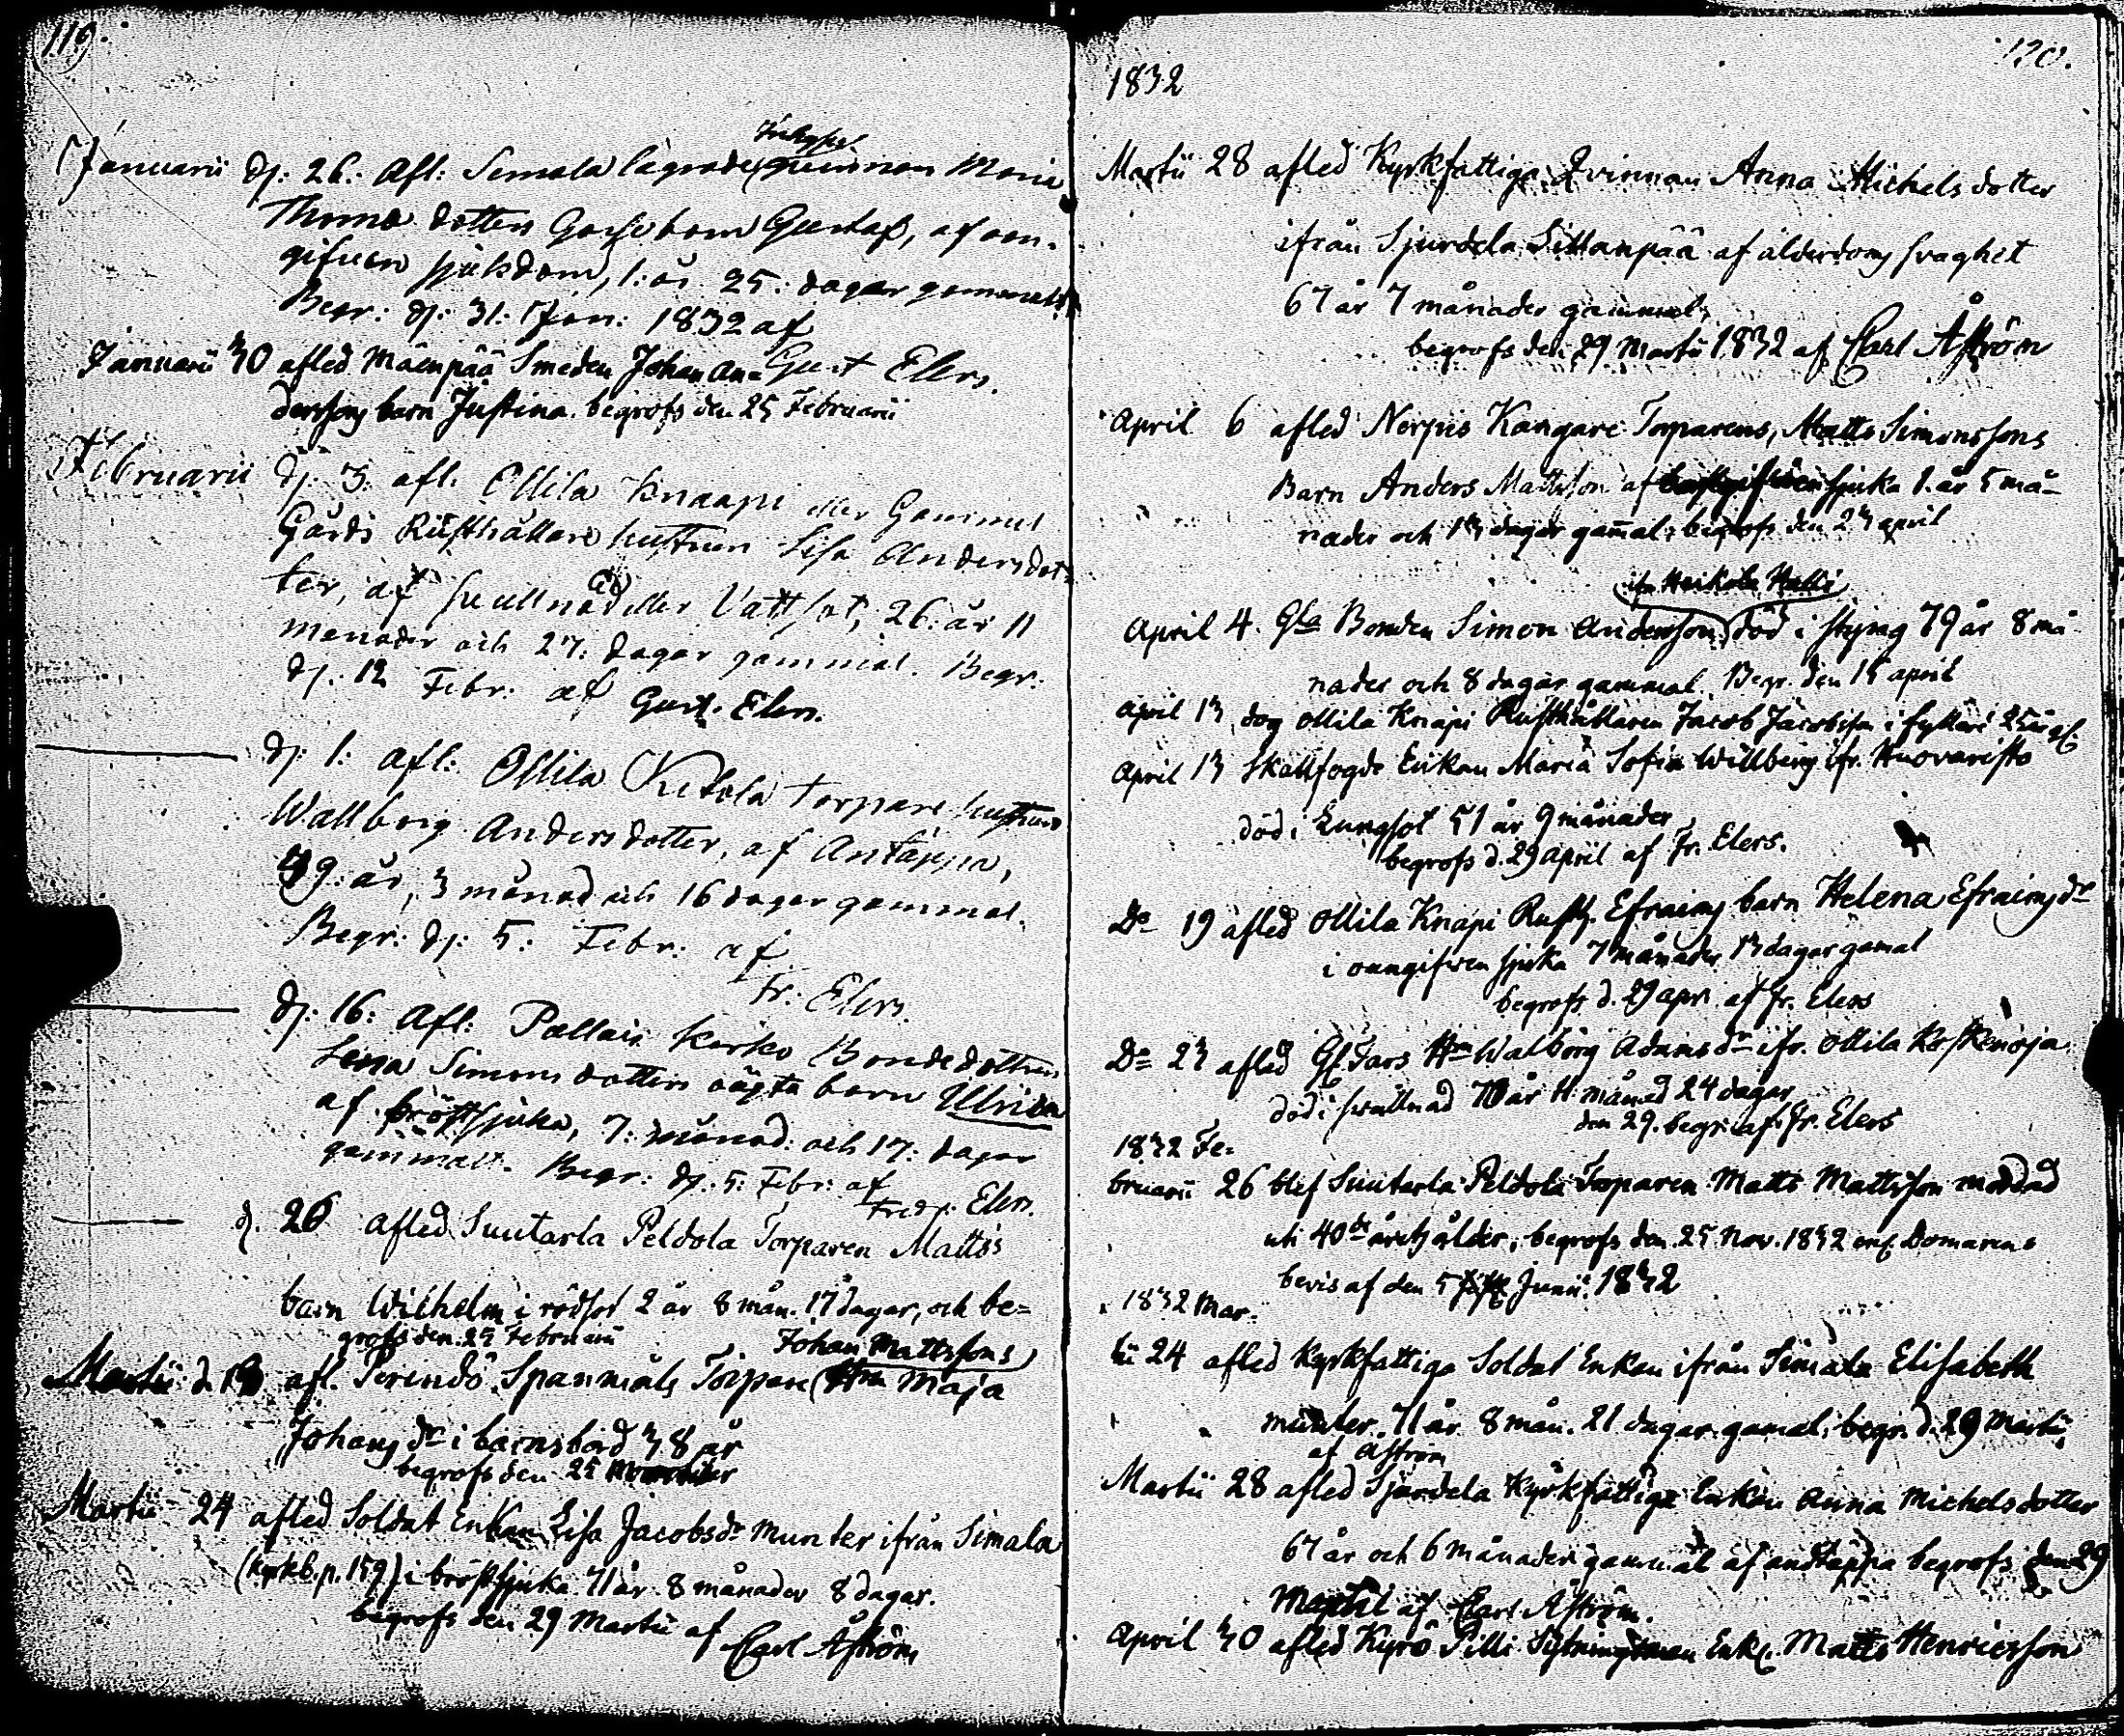 119.
Januarii dj: 26. Afl: Semala lägrade qvinnan Maria
Thomæ dotters Gosse barn Gustaf, af oan-
gifven sjukdom, 1: år 25: dagar gammalt
Begr: dj: 31: Jan: 1832 af
Gust Elers.
Januarii 30 afled Mäenpää Smeden Johan An-
derssons barn Justina. begrofs den 25 Februarii
Februarii dj: 3: afl. Ollila Knaapi eller Gammel
Gårds Rusthållare hustrun Lisa Andersdot-
ter, af svullnad eller Vattsot, 26: år 11
månader och 27: dagar gammal. Begr:
dj: 12 Febr: af Gust. Elers.
dj: 1: afl: Ollila Ketola torpare hustrun
Wallborg Andersdotter, af Antäppa,
39: år, 3 månad och 16 dagar gammal.
Begr: dj: 5: Febr: af
Fr: Elers.
dj: 16: Afl: Pallais Kerko Bondedottren
Lena Simons dotters oägta barn Ulrica
af bröstsjuka, 7: månad: och 17: dagar
gammalt. Begr: dj: 5: Febr: af
Fredr: Elers.
d. 26 afled Suutarla Peldola Torparen Matts's
barn Wilhelm i rödsot 2 år 8 mån. 17 dagar, och be=
grofs den 25 Februarii
Johan Mattssons
Martii d. afl. Perindö Spanmåls Torpare Hru Maja
Johans dr i barnsbörd 38 år
begrofs den 25
Martii 24 afled Soldat Enkan Lisa Jacobsdr Munter ifrån Simala
(kyrkb. p. 159) i bröstsjuka 71 år 8 månader 8 dagar.
begrofs den 29 Martii af Carl Åström
120.
1832
Martii 28 afled Kyrkfattiga Qvinnan Anna Michels dotter
ifrån Sjurdela Sillanpää af ålderdoms svaghet
67 år 7 månader gammal,
begrofs den 29 Martii 1832 af Carl Åström
April 6 afled Nerpis Kangare Torparens, Matts Simonssons
Barn Anders Mattsson af sjuka 1. år 5 må-
nader och 13 dagar gamal, begrofs den 23 april
ifr. Heikola Halli
April 4. Gla Bonden Simon Andersson död i styng 79 år 8 må-
nader och 8 dagar gammal. Begr. den 15 april
April 13 dog Ollila Knapi Rusthållaren Jacob Jacobsson i fylleri 25 år gl.
April 13 Skallfogde Enkan Maria Sofia Willberg ifr. Huovaristo
död i Lungsot 51 år 9 månader
begrofs d. 29 april af Fr. Elers.
Do 19 afled Ollila Knapi Rusth. Efraims barn Helena Efraimsdr
i oangifven sjuka 7 månader 13 dagar gamal
begrofs d. 29 apr. af Fr. Elers
Do 23 afled Gl. Fars Hru Walborg Adams dr ifr. Ollila Koskenoja
död i svullnad 70 år 11 månad 24 dagar
den 29. begr. af Fr. Elers
1832 Fe=
bruarii 26 blef Suutarla Peldola Torparen Matts Mattsson mördad
uti 40de årets ålder, begrofs den 25 Nov. 1832 enl. Domarens
bevis af den 5 Junii 1832
1832 Mar-
tii 24 afled Kyrkfattiga Soldat Enkan ifrån Simala Elisabeth
Munter. 71 år 8 mån. 21 dagar gamal, begr. d. 29 Martii
af Åström
Martii 28 afled Sjurdela Kyrkfattiga Enkan Anna Michelsdotter
67 år och 6 månader gammal af andtäppa begrofs den 29
Martii af Carl Åström.
April 30 afled Kyrö Pilli Enkl. Matts Henricsson